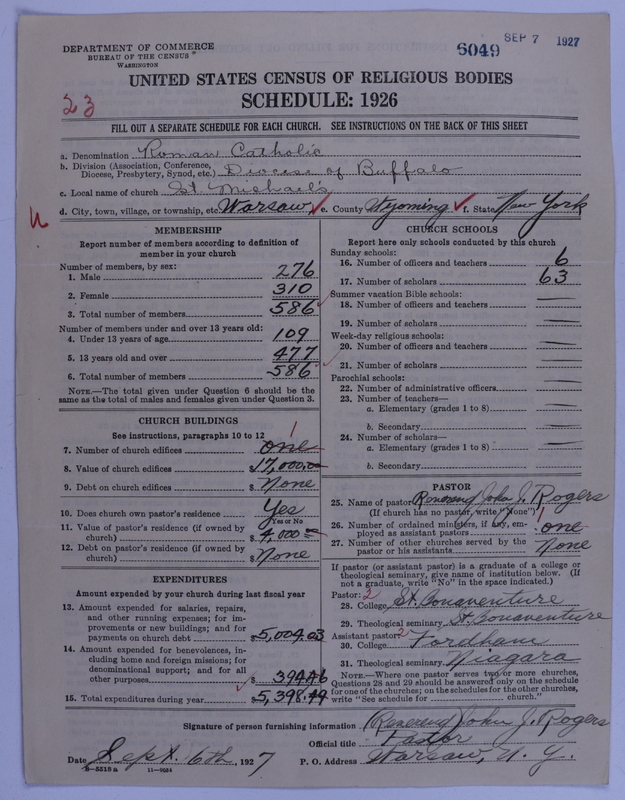 DEPARTMENT OF COMMERCE
BUREAU OF THE CENSUS
WASHINGTON
6049
SEP 7 1927
UNITED STATES CENSUS OF RELIGIOUS BODIES
SCHEDULE: 1926
23
FILL OUT A SEPARATE SCHEDULE FOR EACH CHURCH. SEE INSTRUCTIONS ON THE BACK OF THIS SHEET
a. Denomination Roman Catholic
b. Division (Association, Conference, Diocese, Presbytery, Synod, etc.) Diocese of Buffalo
c. Local name of church St. Michael's
d. City, town, village, or township, etc. Warsaw, e. County Wyoming f. State New York
MEMBERSHIP
Report number of members according to definition of
member in your church
Number of members, by sex:
1. Male 276
2. Female 310
3. Total number of members 586
Number of members under and over 13 years old:
4. Under 13 years of age 109
5. 13 years old and over 477
6. Total number of members 586
NOTE.—The total given under Question 6 should be the
same as the total of males and females given under Question 3.
CHURCH BUILDINGS
See instructions, paragraphs 10 to 12
7. Number of church edifices one 1
8. Value of church edifices $17,000.00
9. Debt on church edifices $ None
10. Does church own pastor's residence Yes
Yes or No
11. Value of pastor's residence (if owned by
church) $4,000.00
12. Debt on pastor's residence (if owned by
church) $ None
EXPENDITURES
Amount expended by your church during last fiscal year
13. Amount expended for salaries, repairs,
and other running expenses; for im-
provements or new buildings; and for
payments on church debt $5,004.03
14. Amount expended for benevolences, in-
cluding home and foreign missions; for
denominational support; and for all
other purposes $ 394.46
15. Total expenditures during year $5,398.49
CHURCH SCHOOLS
Report here only schools conducted by this church
Sunday schools:
16. Number of officers and teachers 6
17. Number of scholars 63
Summer vacation Bible schools:
18. Number of officers and teachers —
19. Number of scholars —
Week-day religious schools:
20. Number of officers and teachers —
21. Number of scholars —
Parochial schools:
22. Number of administrative officers —
23. Number of teachers—
a. Elementary (grades 1 to 8) —
b. Secondary —
24. Number of scholars—
a. Elementary (grades 1 to 8) —
b. Secondary —
PASTOR
25. Name of pastor John J. Rogers
(If church has no pastor, write "None")
26. Number of ordained ministers, if any, em-
ployed as assistant pastors one 1
27. Number of other churches served by the
pastor or his assistants None
If pastor (or assistant pastor) is a graduate of a college or
theological seminary, give name of institution below. (If
not a graduate, write "No" in the space indicated.)
Pastor: 2
28. College St. Bonaventure
29. Theological seminary St. Bonaventure
Assistant pastor: 2
30. College Fordham
31. Theological seminary Niagara
NOTE.—Where one pastor serves two or more churches,
Questions 28 and 29 should be answered only on the schedule
for one of the churches; on the schedules for the other churches,
write "See schedule for church."
Signature of person furnishing information John J. Rogers
Official title Pastor
Date Sept. 6th, 1927 P. O. Address Warsaw, N. Y.
8-5518a 11-9034